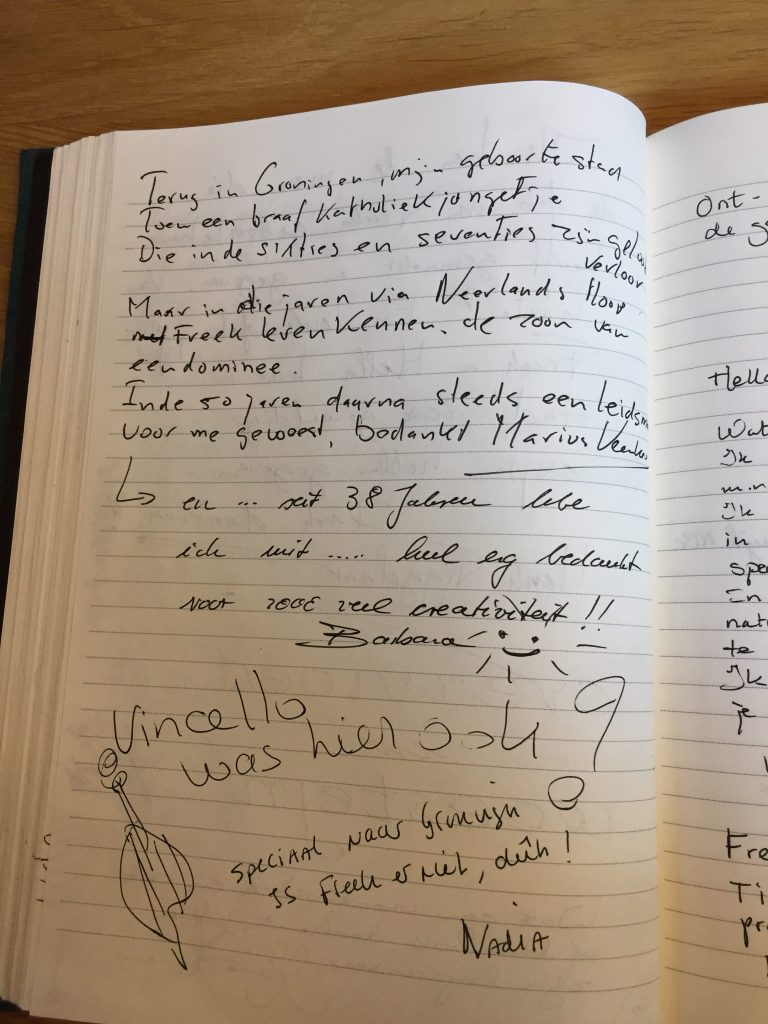 Terug in Groningen, mijn geboortestad
Toen een braaf Katholiek jongetje
Die in de sixties en seventies zijn geloof
verloor
Maar in die jaren via Neerlands Hoop
Freek leren kennen, de zoon van
een dominee.
In de 50 jaren daarna steeds een leidsm
voor me geweest, bedankt Marius
en ... seit 38 Jahren lebe
ich mit ..... heel erg bedankt
voor zoveel creativiteit !!
Barbara
Vincello
was hier ook
speciaal naar Groningn
Is Freek er niet, dûh !
NADIA
Ont-
de g
Hello
Wat
Ik
mijn
Ik
in
spe
In
nat
te
Ik
je
Fre
Ti
pr